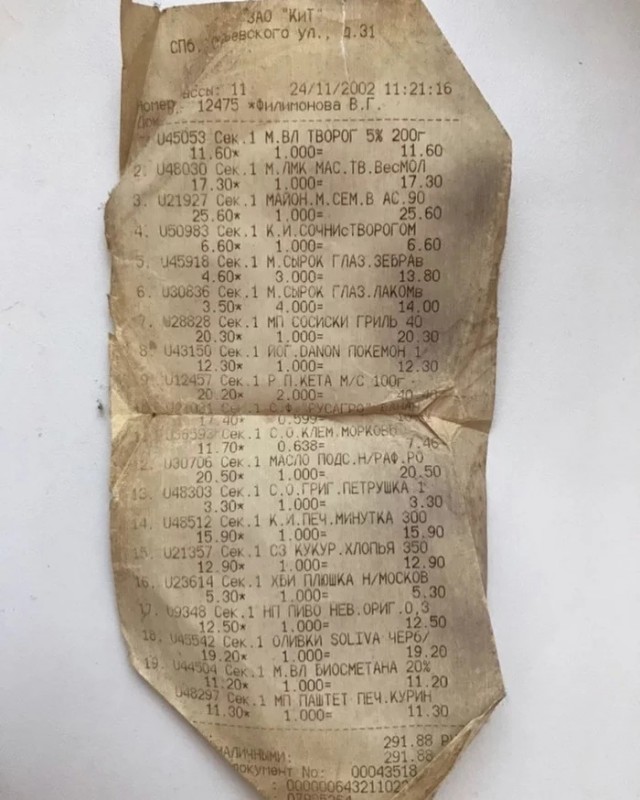 ЗАО "КиТ"
СПб, ул., д.31
ассы: 11 24/11/2002 11:21:16
Номер 12475 *Филимонова В.Г.
U45053 Сек.1 М.ВЛ ТВОРОГ 5% 200г
11.60* 1.000= 11.60
2. U48030 Сек.1 М.ЛМК МАС.ТВ.ВесМОЛ
17.30* 1.000= 17.30
3. U21927 Сек.1 МАЙОН.М.СЕМ.В АС.90
25.60* 1.000= 25.60
4. U50983 Сек.1 К.И.СОЧНИсТВОРОГОМ
6.60* 1.000= 6.60
5. U45918 Сек.1 М.СЫРОК ГЛАЗ.ЗЕБРАв
4.60* 3.000= 13.80
6. U30836 Сек.1 М.СЫРОК ГЛАЗ.ЛАКОМв
3.50* 4.000= 14.00
7. U28828 Сек.1 МП СОСИСКИ ГРИЛЬ 40
20.30* 1.000= 20.30
8. U43150 Сек.1 ЙОГ.DANON ПОКЕМОН 1
12.30* 1.000= 12.30
9. U12457 Сек.1 Р П.КЕТА М/С 100г
20.20* 2.000=
17.40* 0.599=
Сек.1 С.О.КЛЕМ.МОРКОВЬ
11.70* 0.638= 7.46
12. U30706 Сек.1 МАСЛО ПОДС.Н/РАФ.РО
20.50* 1.000= 20.50
13. U48303 Сек.1 С.О.ГРИГ.ПЕТРУШКА 1
3.30* 1.000= 3.30
14. U48512 Сек.1 К.И.ПЕЧ.МИНУТКА 300
15.90* 1.000= 15.90
15. U21357 Сек.1 СЗ КУКУР.ХЛОПЬЯ 350
12.90* 1.000= 12.90
16. U23614 Сек.1 ХБИ ПЛЮШКА Н/МОСКОВ
5.30* 1.000= 5.30
17. U9348 Сек.1 НП ПИВО НЕВ.ОРИГ.0,3
12.50* 1.000= 12.50
18. U45542 Сек.1 ОЛИВКИ SOLIVA ЧЕРб/
19.20* 1.000= 19.20
19. U44504 Сек.1 М.ВЛ БИОСМЕТАНА 20%
11.20* 1.000= 11.20
U48297 Сек.1 МП ПАШТЕТ ПЕЧ.КУРИН
11.30* 1.000= 11.30
291.88
НАЛИЧНЫМИ: 291.88
документ No: 00043518